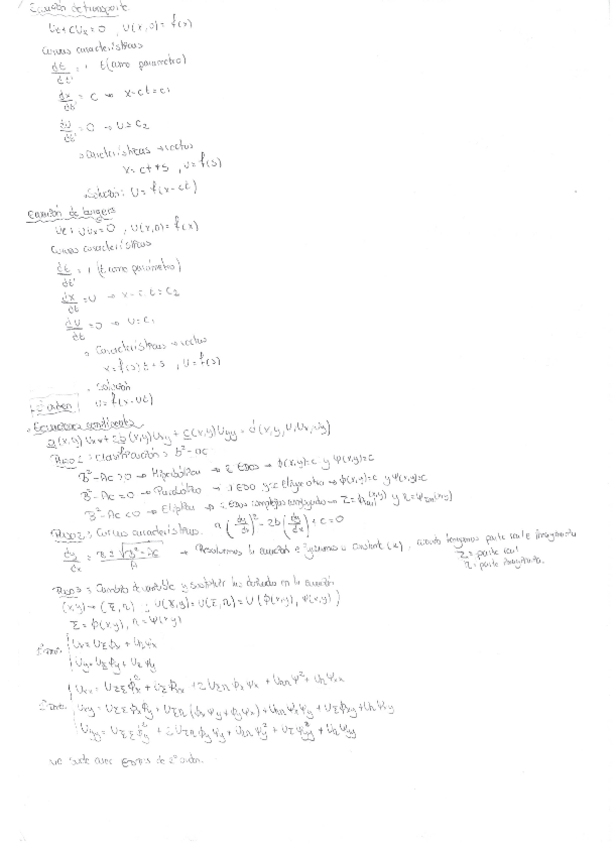 Ecuación de transporte
Ut + CUx = 0 , U(x,0) = f(x)
Curvas características
dt/dt' = 1 t (como parámetro)
dx/dt = c → x - ct = c1
dU/dt = 0 → U = C2
Características → rectas
x = ct + s , U = f(s)
Solución: U = f(x-ct)
Ecuación de burgers
Ut + UUx = 0 , U(x,0) = f(x)
Curvas características
dt/dt' = 1 (t como parámetro)
dx/dt = U → x - t = C2
dU/dt = 0 → U = C1
Características → rectas
x = f(s)t + s , U = f(s)
Solución
U = f(x-Ut)
2º orden
Ecuaciones
a(x,y)Uxx + 2b(x,y)Uxy + c(x,y)Uyy = d(x,y,U,Ux,Uy)
Paso 1: Clasificación: b² - ac
B² - Ac > 0 → Hiperbólica → 2 EDOS → φ(x,y)=c y ψ(x,y)=c
B² - Ac = 0 → Parabólica → 1 EDO y → φ(x,y)=c y ψ(x,y)=c
B² - Ac < 0 → Elíptica →
Paso 2: Curvas características. a(dy/dx)² - 2b(dy/dx) + c = 0
dy/dx = → Resolvemos la ecuación e igualamos a constant (k), cuando tengamos parte real e imaginaria
ξ = parte real
η = parte imaginaria
Paso 3: Cambio de variable y sustituir las derivadas en la ecuación
(x,y) → (ξ,η) ; U(x,y) = U(ξ,η) = U(φ(x,y), ψ(x,y))
ξ = φ(x,y), η = ψ(x,y)
Ux = Uξφx + Uηψx
Uy = Uξφy + Uηψy
Uxx = Uξξφx² + Uξφxx + 2Uξηφxψx + Uηηψx² + Uηψxx
Uxy = Uξξφxφy + Uξη(φxψy + φyψx) + Uηηψxψy + Uξφxy + Uηψxy
Uyy = Uξξφy² + 2Uξηφyψy + Uηηψy² + Uξφyy + Uηψyy
EDPs de 2º orden.